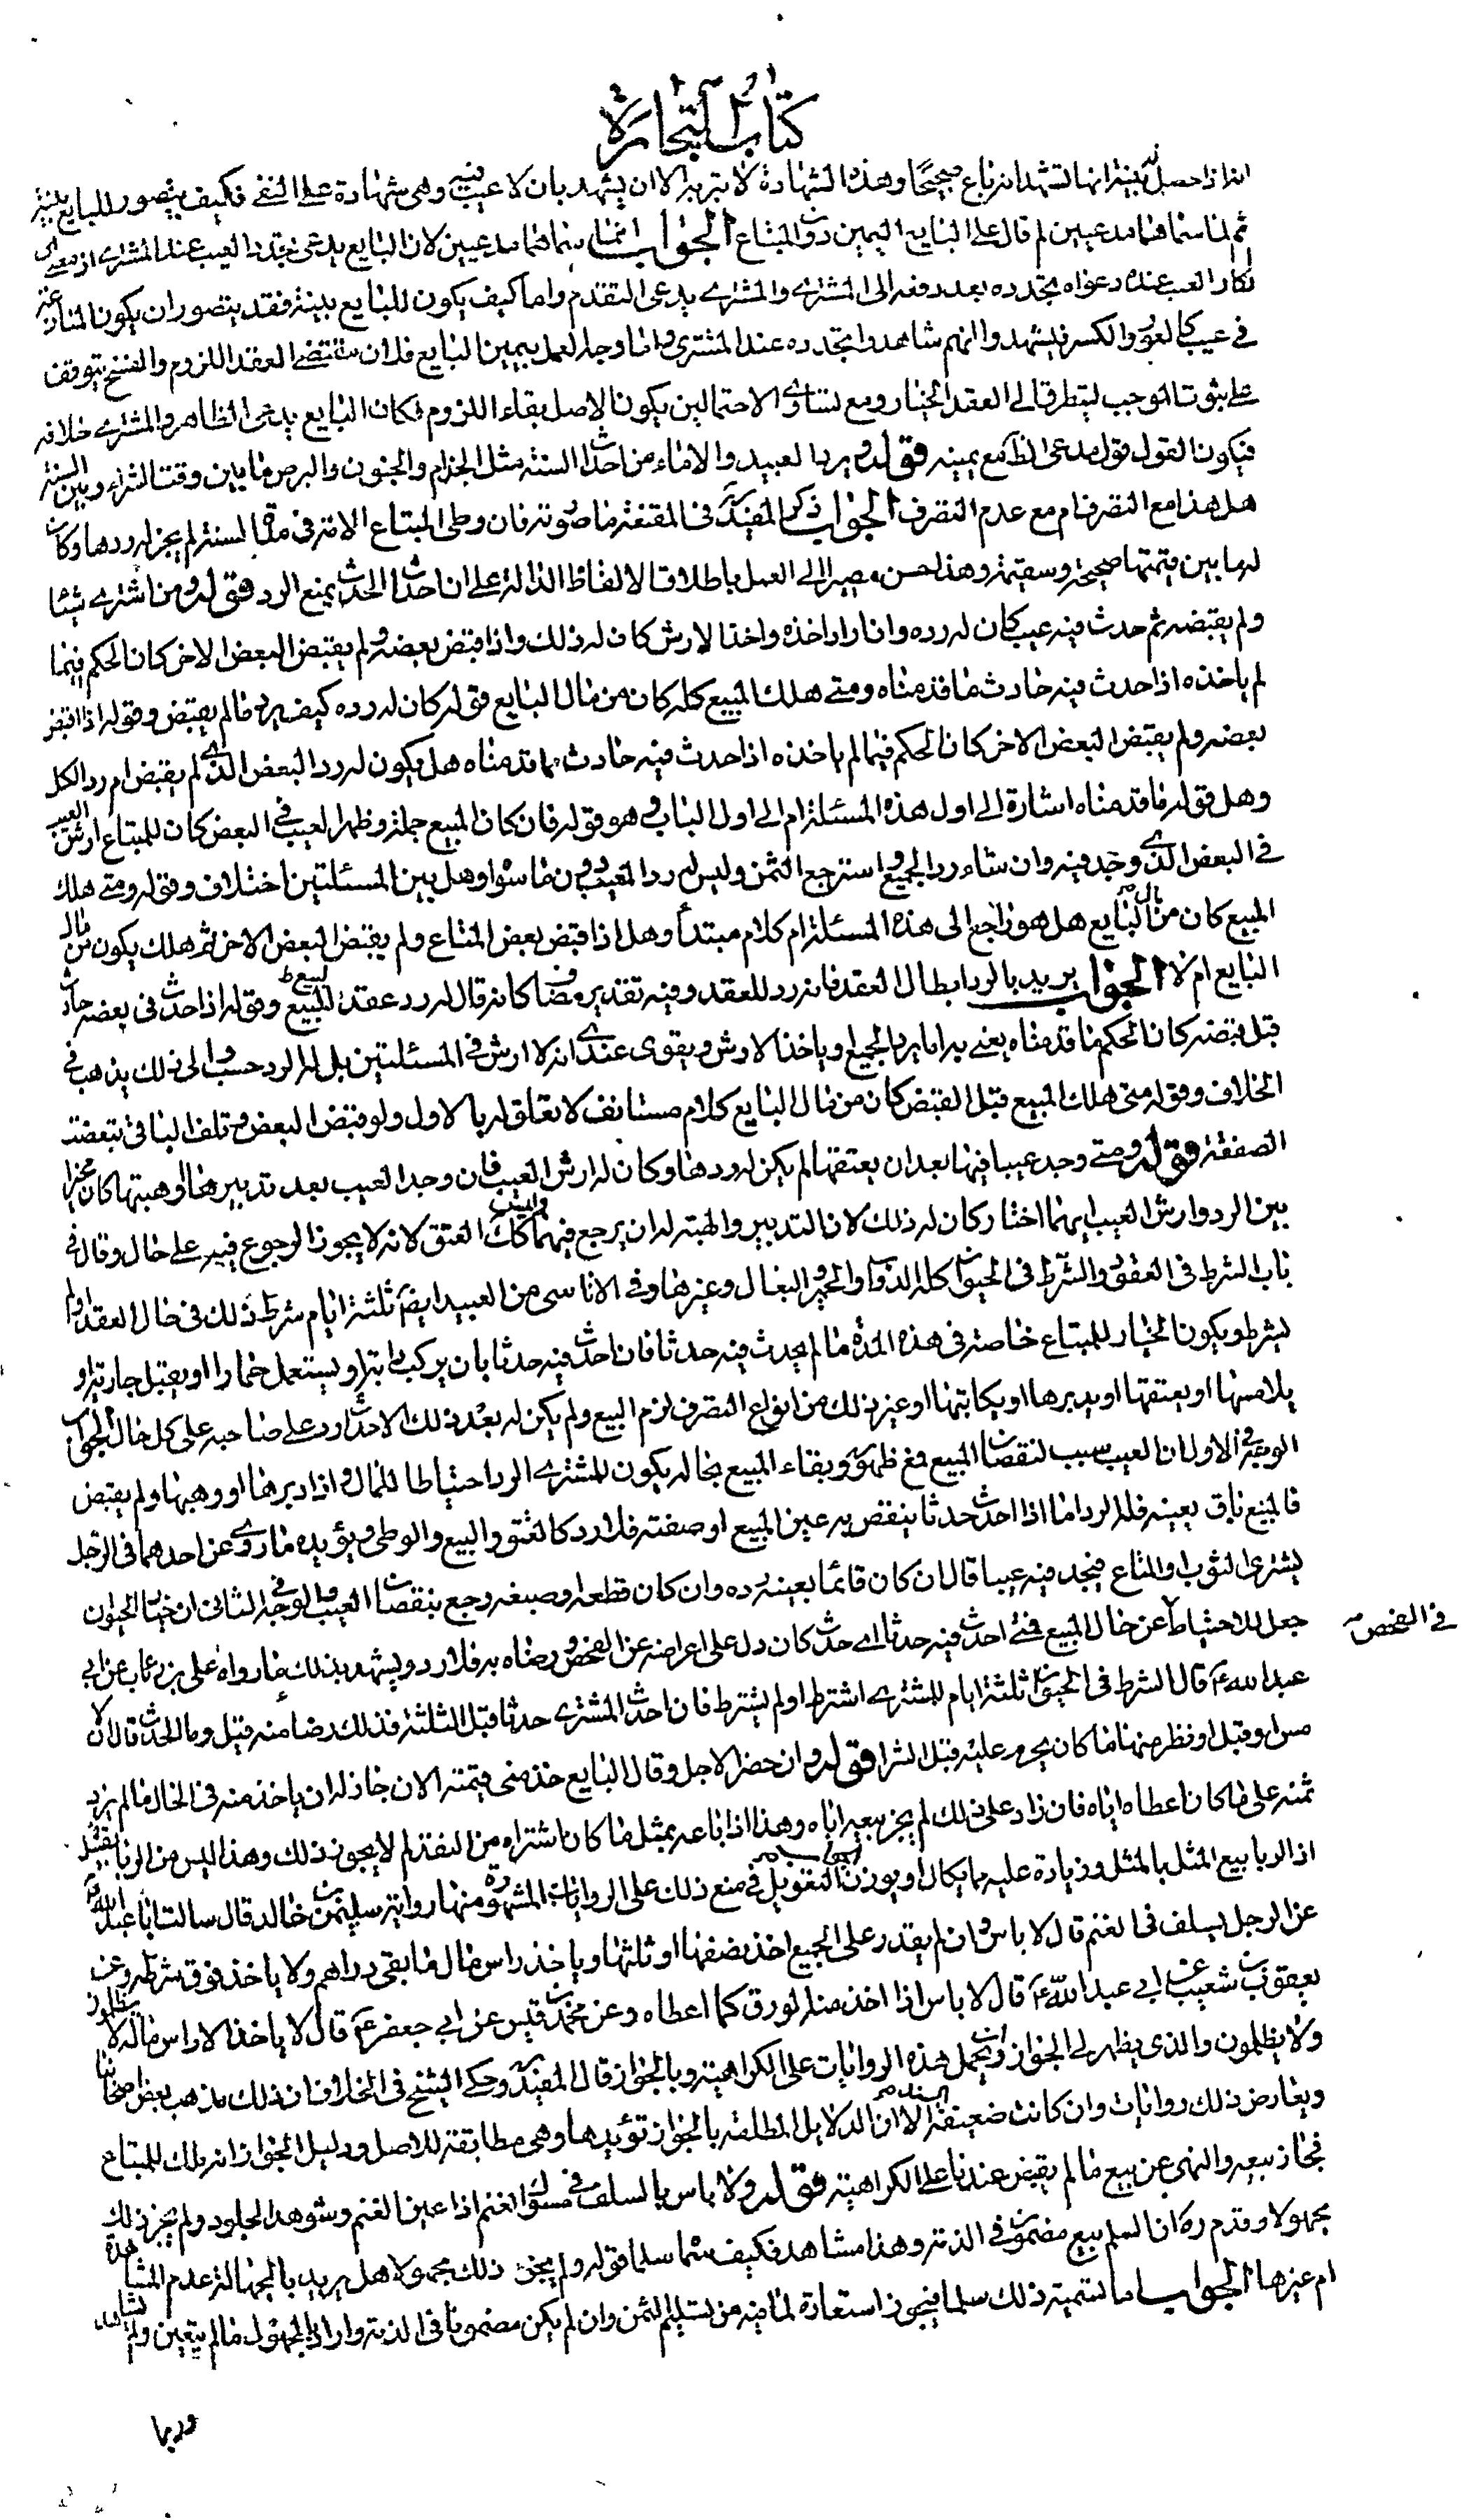 كتاب التجارة
انه اذا حصل بينة انها تشهد انه باع صحيحا وهذه الشهادة لا تبريه الا ان يشهد بان لا عيب فيه وهي شهادة على النفي فكيف يتصور للبايع بينة
ثم لما سماهما مدعيين لم قال على البايع اليمين دون المبتاع الجواب انما سماهما مدعيين لان البايع يدعي تجدد العيب عند المشتري اذ معنى
انكار العيب عنده دعواه تجدده بعد دفعه الى المشتري والمشتري يدعي التقدم واما كيف يكون للبايع بينة فقد يتصور ان يكون المنازعة
في عيب كالعور والكسر فيشهدوا انهم شاهدوا تجدده عند المشتري واما وجه العمل بيمين البايع فلان مقتضى العقد اللزوم والفسخ يتوقف
على ثبوت الموجب لتطرق الى العقد الخيار ومع تساوي الاحتمالين يكون الاصل بقاء اللزوم فكان البايع يدعي الظاهر والمشتري خلافه
فيكون القول قول مدعي الظاهر مع يمينه قوله ويرد العبيد والاماء من احداث السنة مثل الجذام والجنون والبرص ما بين وقت الشراء وبين السنة
هل هذا مع التصرف ام مع عدم التصرف الجواب ذكر المفيد ره في المقنعة ما صورته فان وطي المبتاع الامة في مدة السنة لم يجز له ردها وكان
له ما بين قيمتها صحيحة وسقيمة وهذا حسن مصيرا الى العمل باطلاق الالفاظ الدالة على ان احداث الحدث يمنع الرد قوله ومن اشترى شيئا
ولم يقبضه ثم حدث فيه عيب كان له رده وان اراد اخذه واخذ الارش كان له ذلك واذا قبض بعضه ولم يقبض البعض الاخر كان الحكم فيما
لم ياخذه اذا حدث فيه حادث ما قدمناه ومتى هلك المبيع كله كان من مال البايع قوله كان له رده كيف يرد ما لم يقبض وقوله اذا قبض
بعضه ولم يقبض البعض الاخر كان الحكم فيما لم ياخذه اذا حدث فيه حادث ما قدمناه هل يكون له رد البعض الذي لم يقبض ام رد الكل
وهل قوله ما قدمناه اشارة الى اول هذه المسئلة ام الى اول الباب وهو قوله فان كان المبيع جملة وظهر العيب في البعض كان للمبتاع ارش العيب
في البعض الذي وجد فيه وان شاء رد الجميع واسترجع الثمن وليس له رد المعيب دون ما سواه وهل بين المسئلتين اختلاف وقوله ومتى هلك
المبيع كان من مال البايع هل هو راجع الى هذه المسئلة ام كلام مبتدأ وهل اذا قبض بعض المتاع ولم يقبض البعض الاخر ثم هلك يكون من مال
البايع ام لا الجواب يريد بالرد ابطال العقد فانه رد للعقد وفيه تقدير مضاف كانه قال له رد عقد المبيع وقوله اذا حدث في بعضه حادث
قبل قبضه كان الحكم ما قدمناه يعني به اما يرد الجميع او ياخذ الارش ويقوى عندي انه لا ارش في المسئلتين بل له الرد حسب والى ذلك يذهب في
الخلاف وقوله متى هلك المبيع قبل القبض كان من مال البايع كلام مستانف لا تعلق له بالاول ولو قبض البعض وتلف الباقي تبعضت
الصفقة قوله ومتى وجد عيبا فيها بعد ان يعتقها لم يكن له ردها وكان له ارش العيب فان وجد العيب بعد تدبيرها او هبتها كان مخيرا
بين الرد وارش العيب ايهما اختار كان له ذلك لان التدبير والهبة له ان يرجع فيهما وليس كذلك العتق لانه لا يجوز الرجوع فيه على حال وقال في
باب الشرط في العقود والشرط في الحيوان كله الدواب والحمير والبغال وغيرها وفي الاناسي من العبيد ايضا ثلثة ايام شرط ذلك في حال العقد او لم
يشرط ويكون الخيار للمبتاع خاصة في هذه المدة ما لم يحدث فيه حدثا فان احدث فيه حدثا بان يركب دابة او يستعمل حمارا او يقبل جارية او
يلامسها او يعتقها او يدبرها او يكاتبها او غير ذلك من انواع التصرف لزم البيع ولم يكن له بعد ذلك الاحداث رد على صاحبه على كل حال الجواب
الوجه في الاول ان العيب سبب لنقصان المبيع فمع ظهوره وبقاء المبيع بحاله يكون للمشتري الرد احتياطا للمال واذا دبرها او وهبها ولم يقبض
فالمبيع باق بعينه فله الرد اما اذا احدث حدثا ينقص به عين المبيع او صفته فلا رد كالعتق والبيع والوطي ويؤيده ما روي عن احدهما في الرجل
يشتري الثوب او المتاع فيجد فيه عيبا قال ان كان قائما بعينه رده وان كان قطعه او صبغه رجع بنقصان العيب والوجه في الثاني ان خيار الحيوان
جعل للاحتياط عن حال المبيع فمتى احدث فيه حدثا اي حدث كان دل على اعراضه عن الفحص ورضاه به فلا رد ويشهد بذلك ما رواه علي بن رئاب عن ابي
في الفحص
عبد الله ع قال الشرط في الحيوان ثلثة ايام للمشتري اشترط او لم يشترط فان احدث المشتري حدثا قبل الثلثة فذلك رضا منه قيل وما الحدث قال ان لا
مس او قبل او نظر منها ما كان يحرم عليه قبل الشرا قوله وان حضر الاجل وقال البايع خذ مني قيمته الان جاز له ان ياخذ منه في الحال ما لم يزد
ثمنه على ما كان اعطاه اياه فان زاد على ذلك لم يجز بيعه اياه وهذا اذا باعه بمثل ما كان اشتراه من النقد لم لا يجوز ذلك وهذا ليس من الربا بقبيل
اذ الربا بيع المثل بالمثل وزيادة عليه مما يكال او يوزن الجواب التعويل في منع ذلك على الروايات المشهورة ومنها رواية سليمن بن خالد قال سالت ابا عبد الله ع
عن الرجل يسلف في الغنم قال لا باس وان لم يقدر على الجميع اخذ نصفها او ثلثها وياخذ راس مال ما بقي دراهم ولا ياخذ فوق شرطه وعن
يعقوب بن شعيب عن ابي عبد الله ع قال لا باس اذا اخذ منه الورق كما اعطاه وعن محمد بن قيس عن ابي جعفر ع قال لا ياخذ الا راس ماله لا يظلمون
ولا يظلمون والذي يظهر لي الجواز وان تحمل هذه الروايات على الكراهية وبالجواز قال المفيد ره وحكى الشيخ في الخلاف ان ذلك مذهب بعض اصحابنا
ويعارض ذلك روايات وان كانت ضعيفة السند الا ان الدلايل المطلقة بالجواز تؤيدها وهي مطابقة للاصل ودليل الجواز انه ملك للمبتاع
فجاز بيعه والنهي عن بيع ما لم يقبض عندنا على الكراهية قوله ولا باس بالسلف في مسوك الغنم اذا عين الغنم وشوهد الجلود ولم يجز ذلك
مجهولا وقدم ره ان السلم بيع مضمون في الذمة وهذا مشاهد فكيف سماه سلما قوله ولم يجز ذلك مجهولا هل يريد بالجهالة عدم المشاهدة
ام غيرها الجواب اما تسمية ذلك سلما فيجوز استعارة لما فيه من تسليم الثمن وان لم يكن مضمونا في الذمة واراد بالمجهول ما لم يتعين ولم يشاهد
وربما